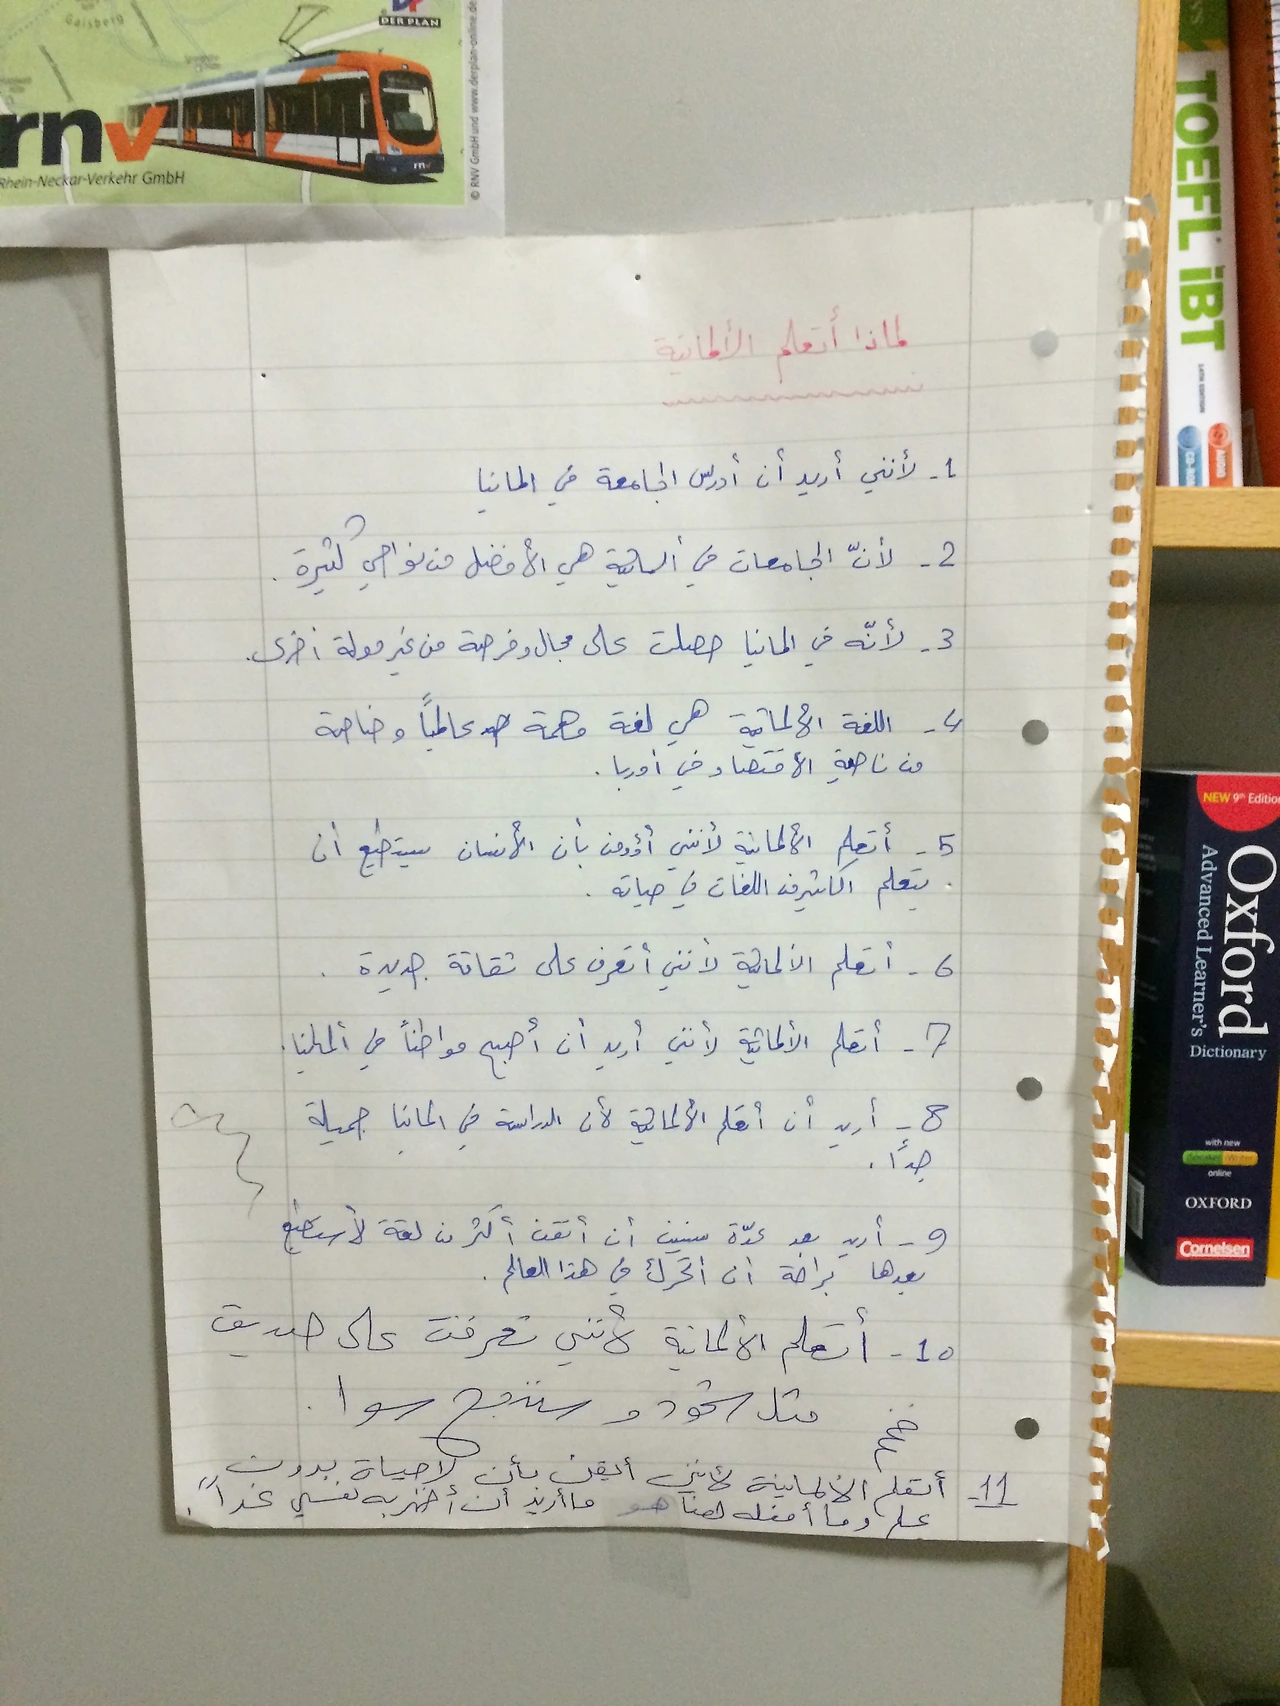 Gaisberg
DER PLAN
rnv
Rhein-Neckar-Verkehr GmbH
rnv
© RNV GmbH und www.derplan-online.de
لماذا أتعلم الألمانية
1- لأنني أريد أن أدرس الجامعة في المانيا
2- لأنّ الجامعات في ألمانية هي الأفضل من نواحي كثيرة .
3- لأنّه في المانيا حصلت على مجال وفرصة من غير دولة أخرى.
4- اللغة الألمانية هي لغة مهمة عالمياً وخاصة
من ناحية الأقتصاد في أوربا .
5- أتعلم الألمانية لأنني أؤمن بأن الأنسان يستطيع أن
يتعلم الكثير من اللغات في حياته .
6- أتعلم الألمانية لأنني أتعرف على ثقافة جديدة .
7- أتعلم الألمانية لأنني أريد أن أصبح مواطناً في ألمانيا.
8- أريد أن أتعلم الألمانية لأن الدراسة في المانيا جميلة
جداً .
9- أريد بعد عدّة سنين أن أتقن أكثر من لغة لأستطيع
بعدها براحة أن اتحرك في هذا العالم .
10- أتعلم الألمانية لأنني تعرفت على صديق
مثل و سندمج سوا .
11- أتعلم الألمانية لأنني أيقن بأن لا حياة بدون
علم وما أفعله هنا هو ما أريد أن أفخر به نفسي غداً".
TOEFL iBT
AUDIO
CD-ROM
NEW 9th Edition
Oxford
Advanced Learner's
Dictionary
with new
Speaker Writer
online
OXFORD
Cornelsen